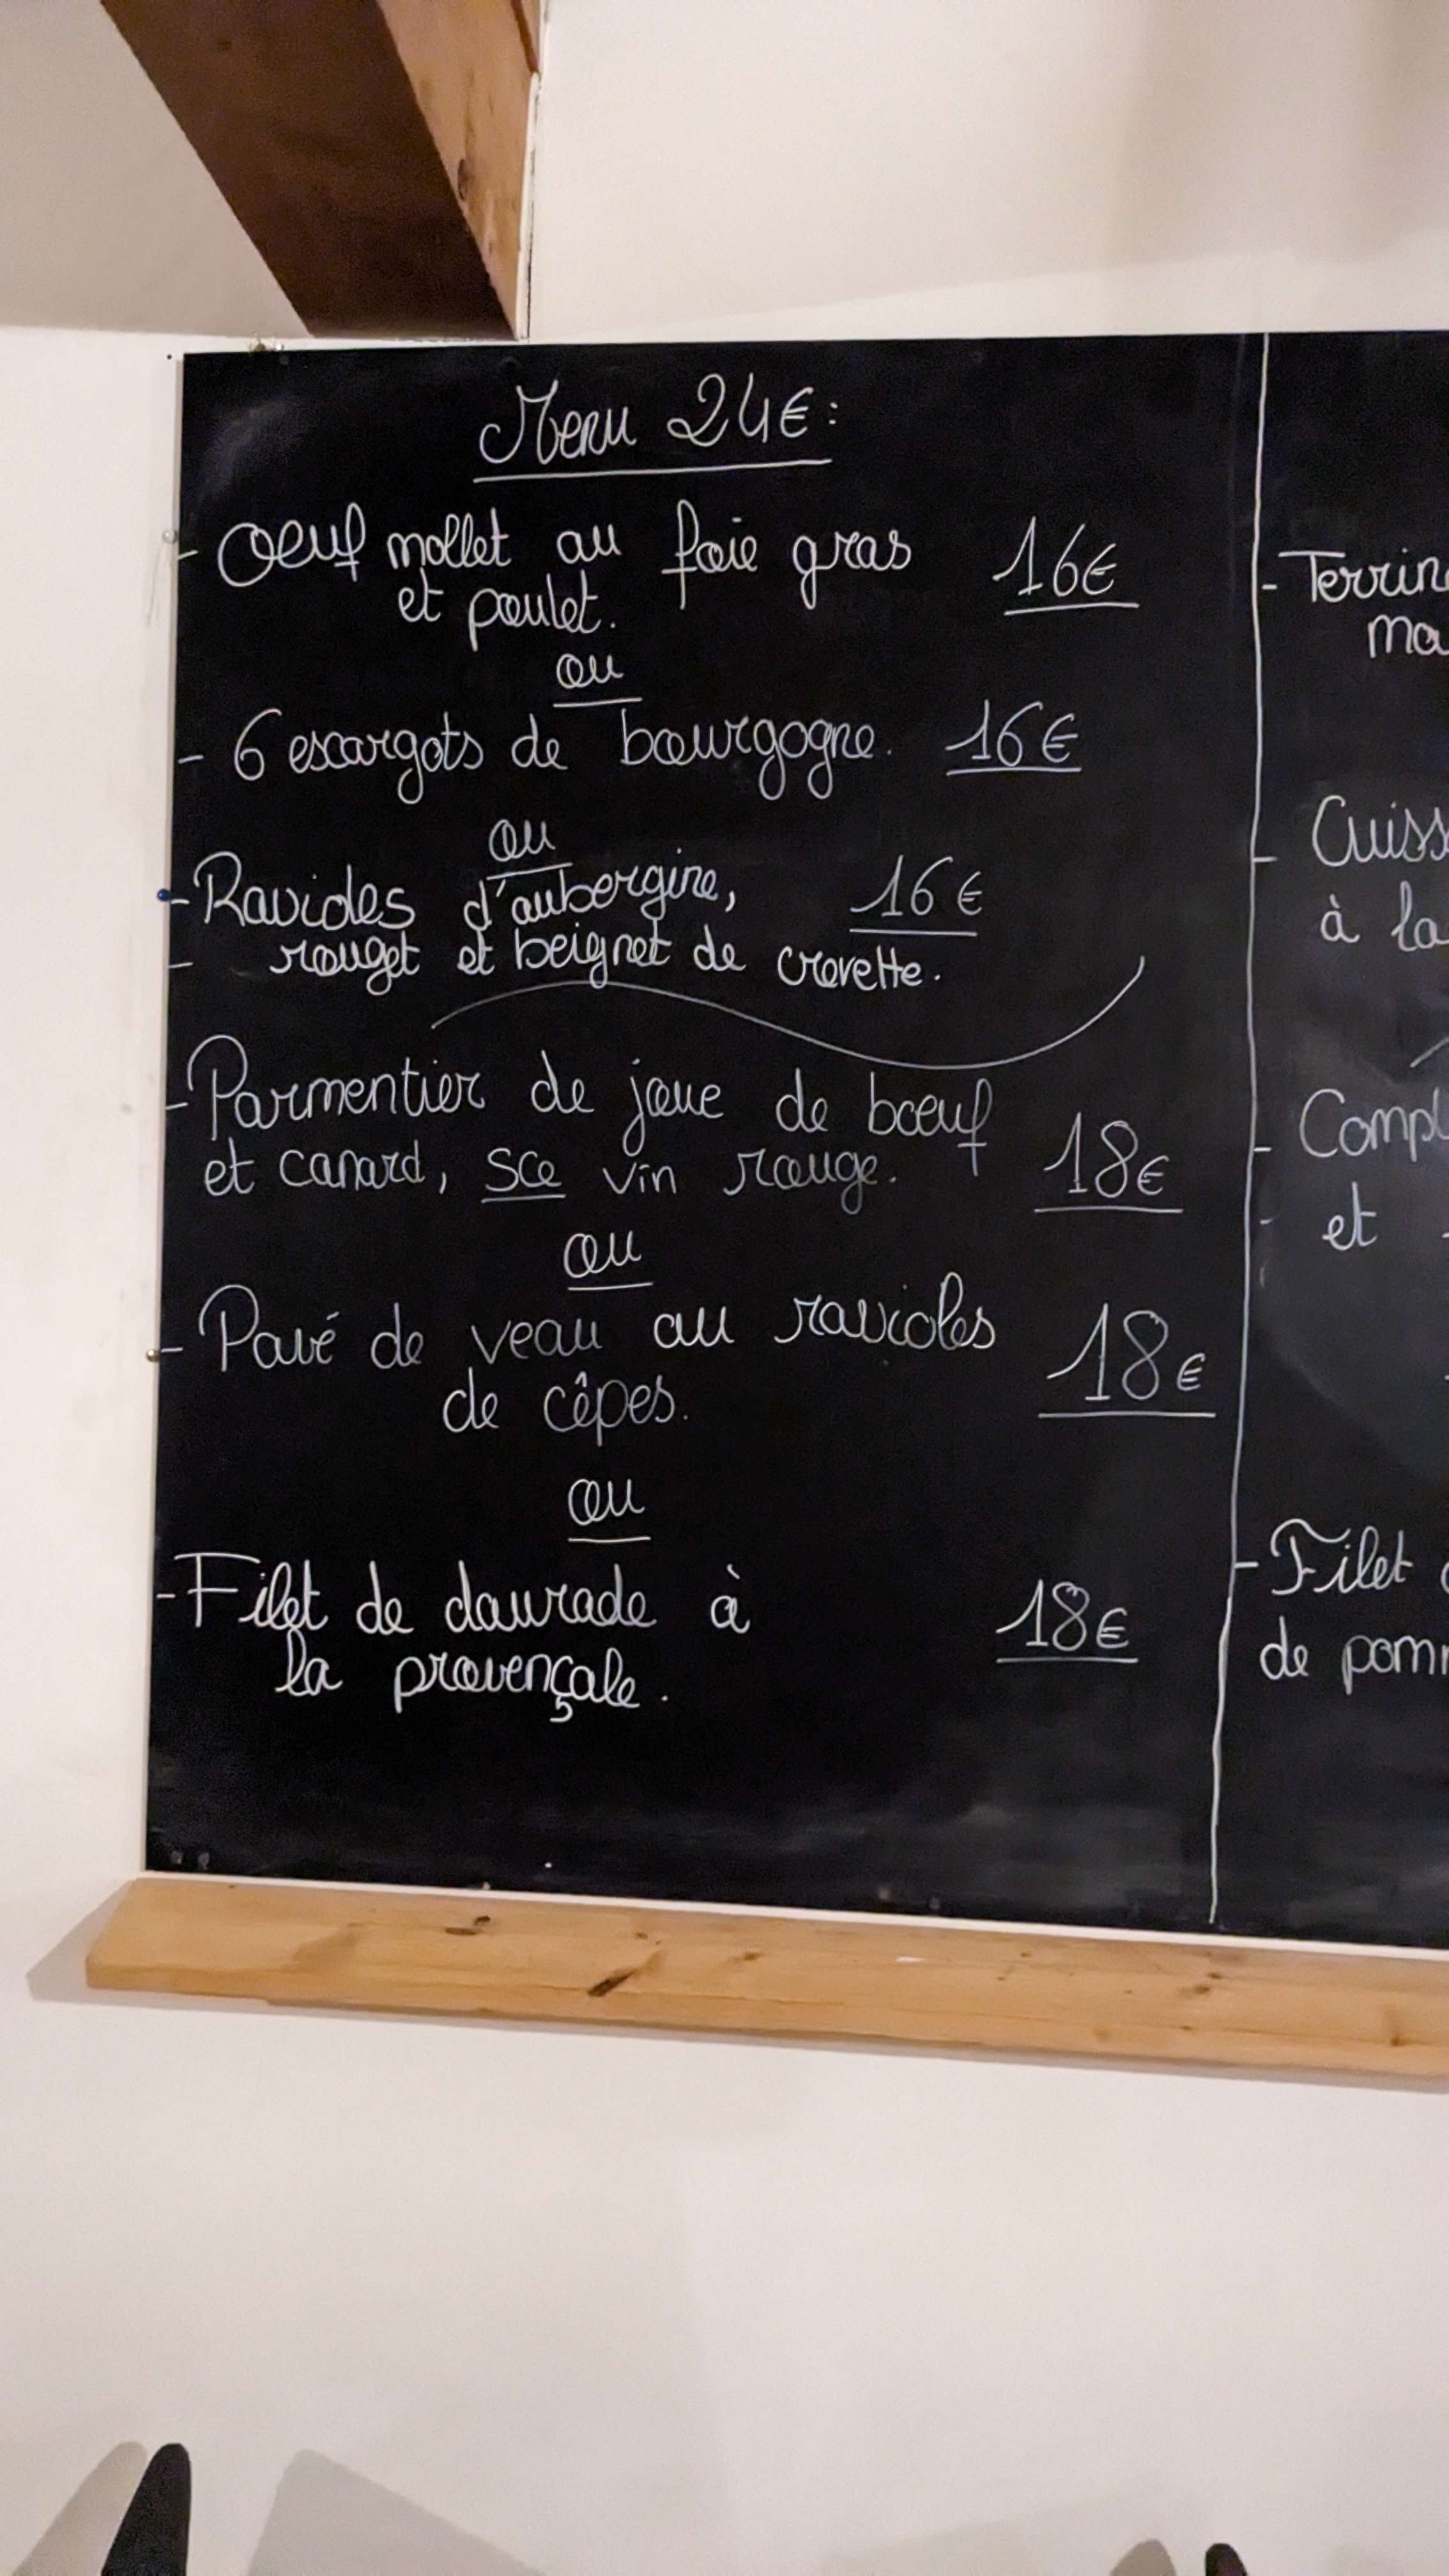 Menu 24€:
- Oeuf mollet au foie gras 16€
et poulet.
ou
- 6 escargots de bourgogne. 16€
ou
- Ravioles d'aubergine, 16€
- rouget et beignet de crevette.
- Parmentier de joue de bœuf
et canard, sce vin rouge. 18€
ou
- Pavé de veau au ravioles 18€
de cêpes.
ou
- Filet de daurade à 18€
la provençale.
- Terrin
ma
- Cuiss
à la
- Compl
- et
- Filet
de pom